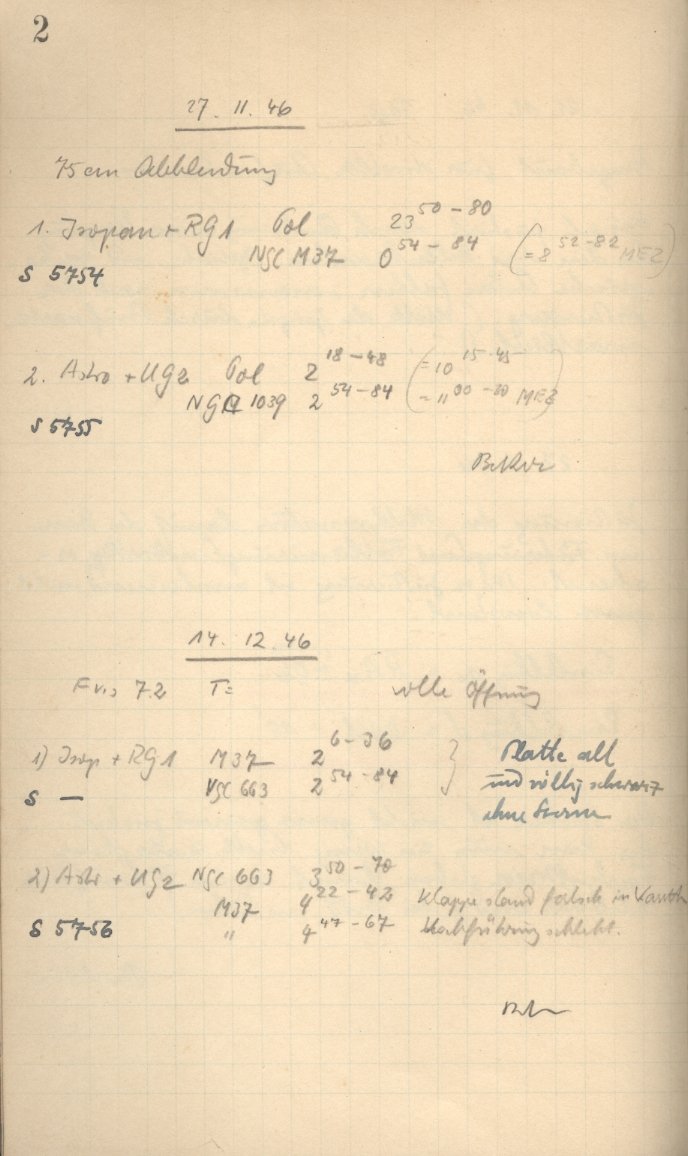 2
27. 11. 46
75 cm Abblendung
1. Isopan + RG1 Pol 23 50 – 80
NGC M37 0 54 – 84 (= 8 52–82 MEZ)
S 5754
2. Astro + UG2 Pol 2 18 – 48 (= 10 15–45
NGC 1039 2 54 – 84 = 11 00 – 20 MEZ)
S 5755
14. 12. 46
7.2 T= volle Öffnung
1) Isop + RG1 M37 2 6 – 36 } Platte alt
NGC 663 2 54 – 84 und völlig schwarz
S — ohne Sterne
2) Astr + UG2 NGC 663 3 50 – 70
M37 4 22 – 42 Klappe stand falsch in
S 5756 " 4 47 – 67 Nachführung schlecht.